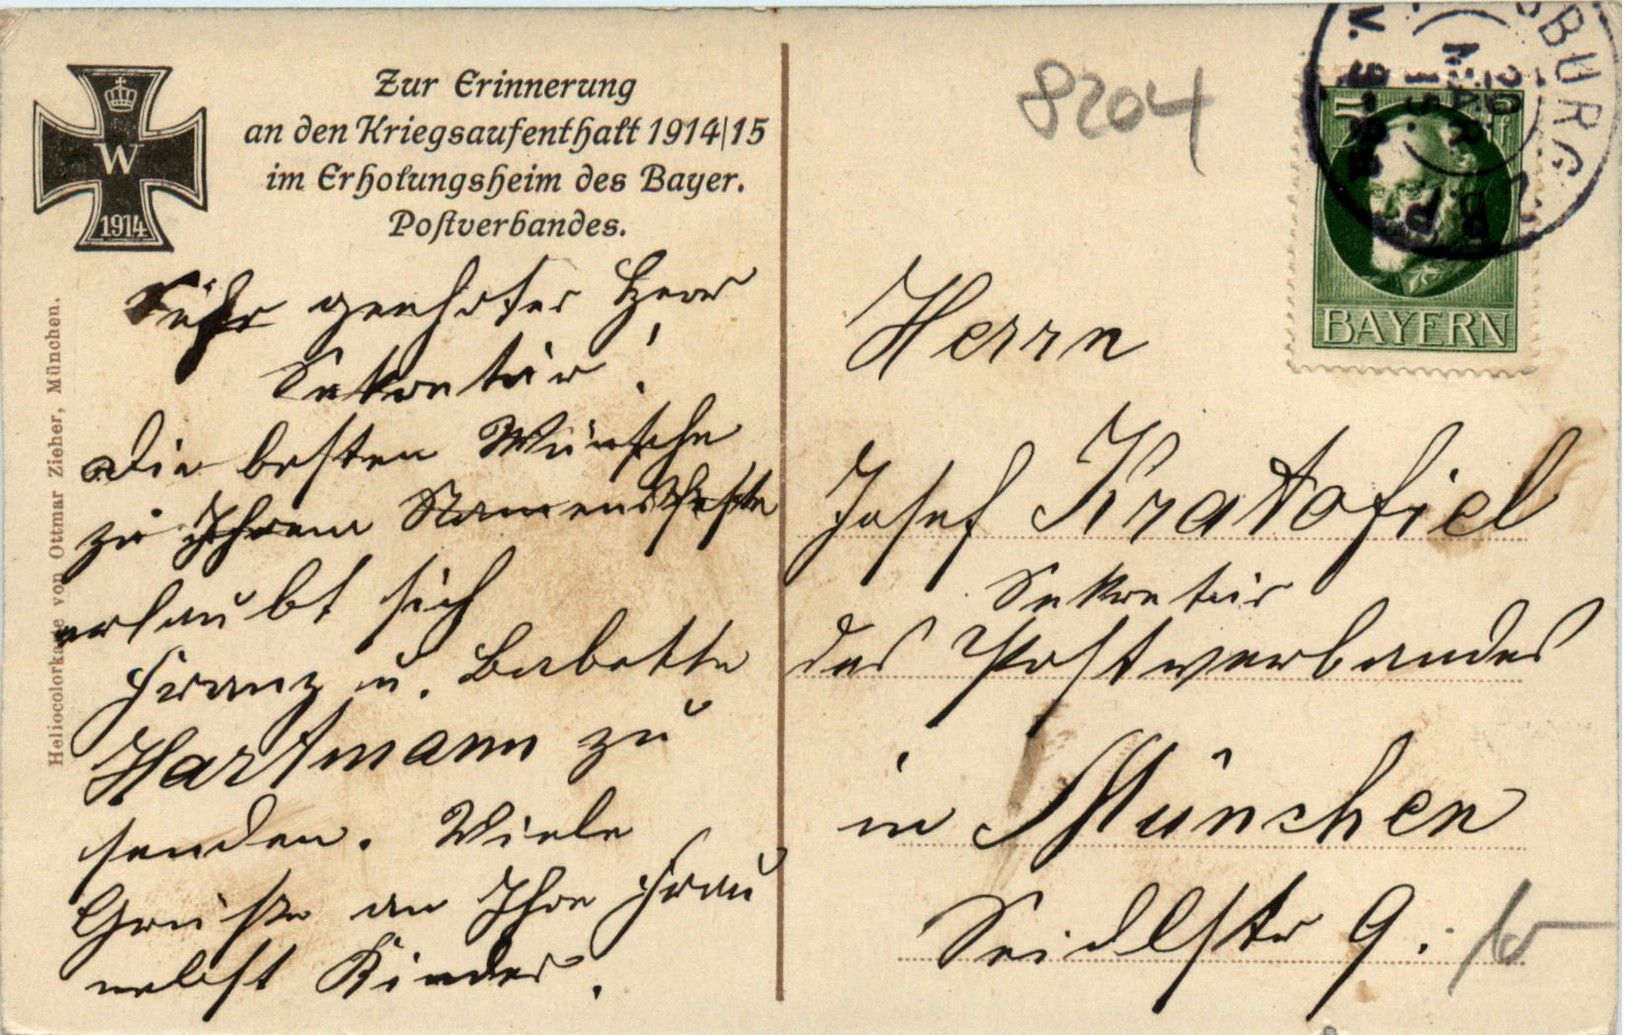 Zur Erinnerung
an den Kriegsaufenthalt 1914|15
im Erholungsheim des Bayer.
Postverbandes.
W
1914
Heliocolorkarte von Ottmar Zieher, München.
Sehr geehrter Herr
Sekretär!
Die besten Wünsche
zu Ihrem Namensfeste
erlaubt sich
Franz u. Babette
Hartmann zu
senden. Viele
Grüße an Ihre Frau
nebst Kinder.
8204
BURG
20
MAR
15
V. 8-9
B.P.
BAYERN
Herrn
Josef Kratofiel
Sekretär
des Postverbandes
in München
Seidlstr 9.